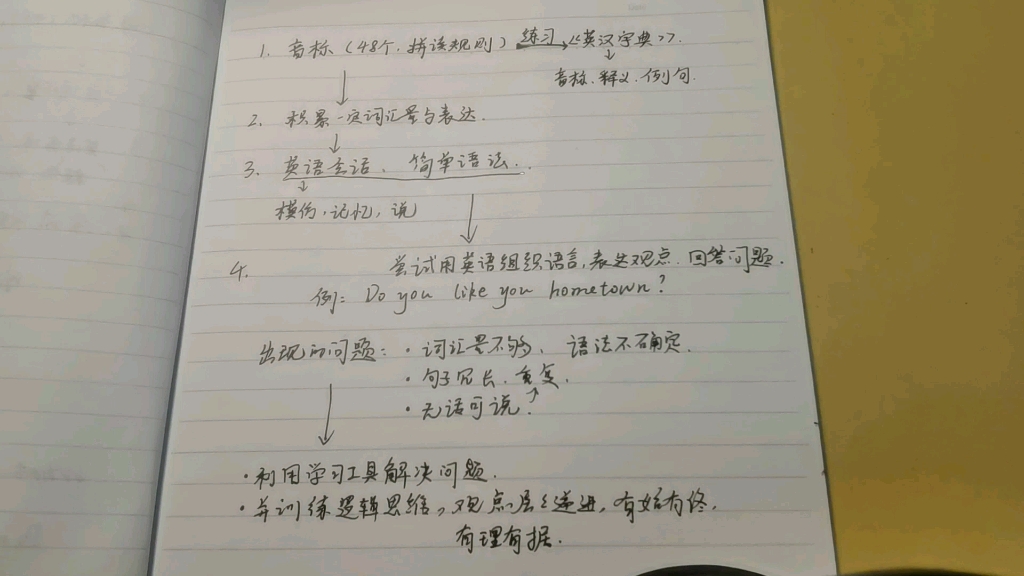 1. 音标（48个.拼读规则）练习→《英汉字典》.
↓
音标.释义.例句.
↓
2. 积累一定词汇量与表达.
↓
3. 英语会话、简单语法.
↓
模仿,记忆,说
↓
4. 尝试用英语组织语言,表达观点.回答问题.
例: Do you like you hometown?
出现的问题: ·词汇量不够、语法不确定.
·句子冗长.重复.
·无话可说.↗
↓
·利用学习工具解决问题.
·并训练逻辑思维,观点层层递进,有始有终,
有理有据.